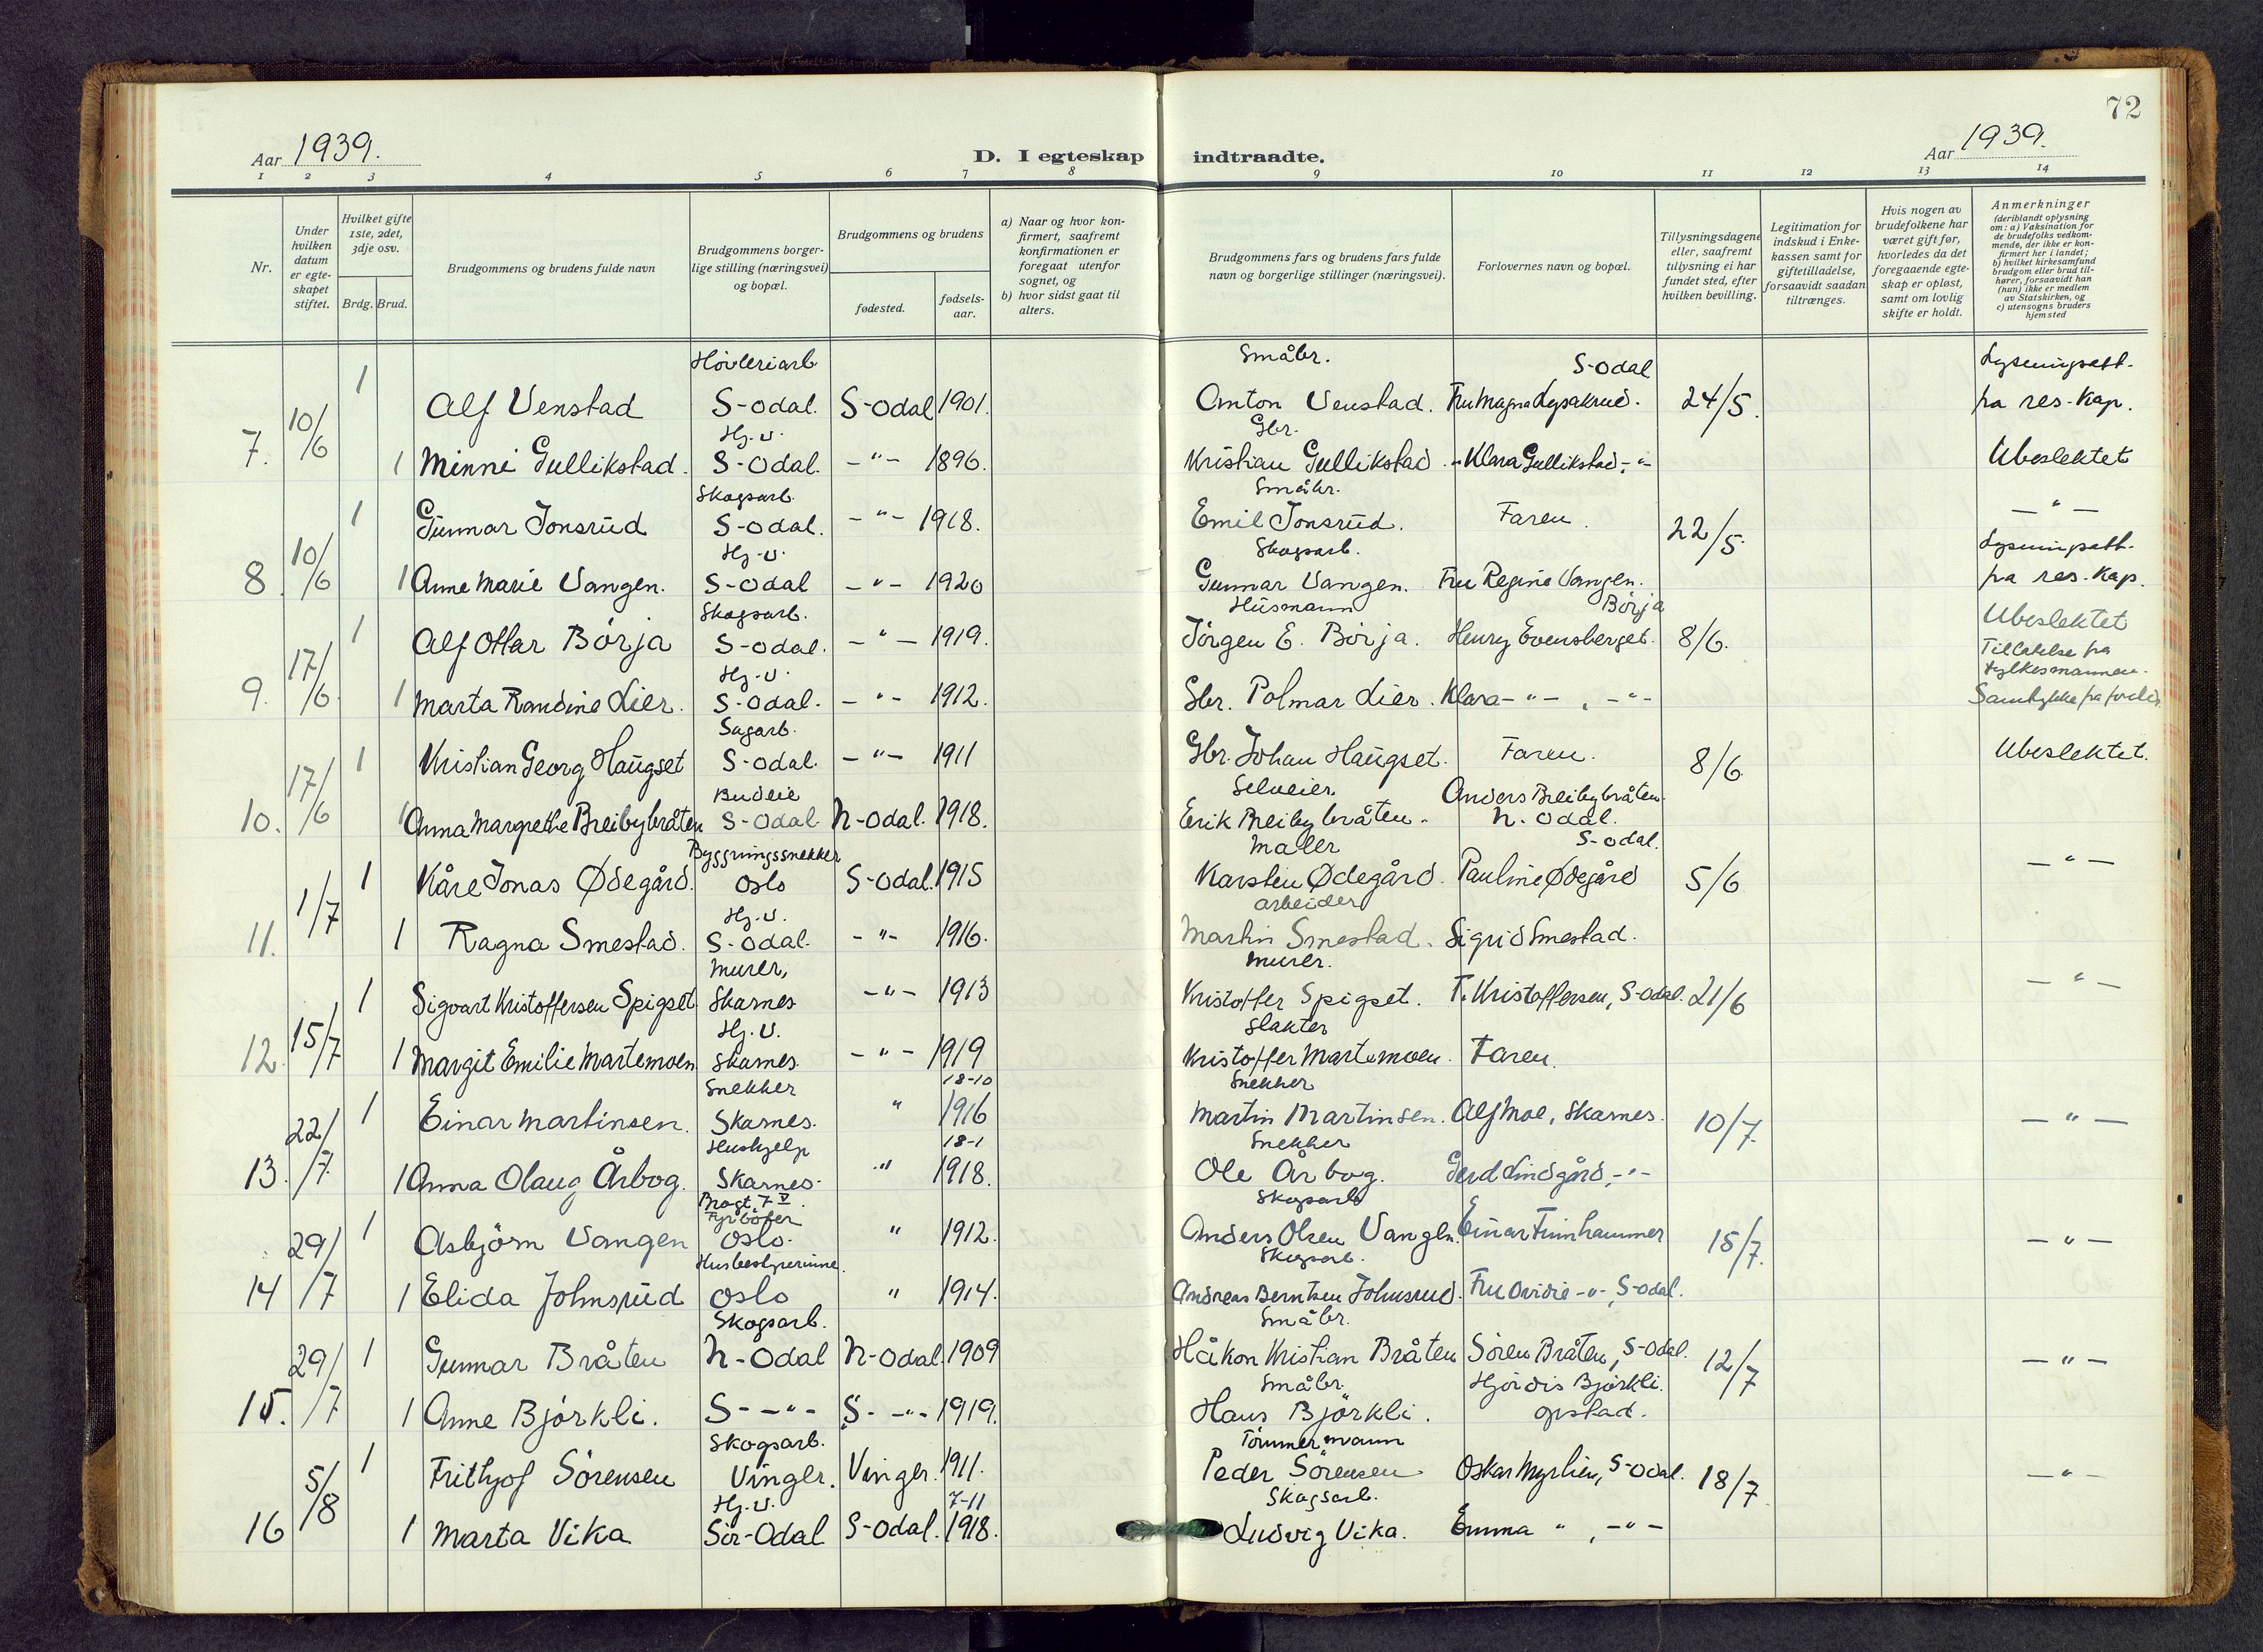 72
Aar 1939.
D. I egteskap indtraadte.
Aar 1939.
1 2 3 4 5 6 7 8 9 10 11 12 13 14
Nr.
Under hvilken datum er egteskapet stiftet.
Hvilket gifte 1ste, 2det, 3dje osv.
Brdg. Brud.
Brudgommens og brudens fulde navn
Brudgommens borgerlige stilling (næringsvei) og bopæl.
Brudgommens og brudens
fødested.
fødselsaar.
a) Naar og hvor konfirmert, saafremt konfirmationen er foregaat utenfor sognet, og
b) hvor sidst gaat til alters.
Brudgommens fars og brudens fars fulde navn og borgerlige stillinger (næringsvei).
Forlovernes navn og bopæl.
Tillysningsdagene eller, saafremt tillysning ei har fundet sted, efter hvilken bevilling.
Legitimation for indskud i Enkekassen samt for giftetilladelse, forsaavidt saadan tiltrænges.
Hvis nogen av brudefolkene har været gift før, hvorledes da det foregaaende egteskap er opløst, samt om lovlig skifte er holdt.
Anmerkninger (deriblandt oplysning om: a) Vaksination for de brudefolks vedkommende, der ikke er konfirmert her i landet; b) hvilket kirkesamfund brudgom eller brud tilhører, forsaavidt han (hun) ikke er medlem av Statskirken, og c) utensogns bruders hjemsted
Høvleriarb Småbr. S-Odal Lysningsatt.
1 Alf Venstad S-Odal. S-Odal 1901. Anton Venstad. Fru Magna Lysakrud. 24/5. fra res. Kap.
7. 10/6 Hj. v. Gbr.
1 Minni Gullikstad. S-Odal. -"- 1896. Kristian Gullikstad. "Klara Gullikstad, -"- Ubeslektet
Skogsarb. Småbr.
1 Gunnar Jonsrud S-Odal. -"- 1918. Emil Jonsrud. Faren. 22/5. -"-
8. 10/6 Hj. v. Skogsarb. Lysningsatt.
1 Anne Marie Vangen. S-Odal -"- 1920 Gunnar Vangen. Fru Regine Vangen. fra res. Kap.
Skogsarb. Husmann Børja Ubeslektet
1 Alf Ottar Børja S-Odal. -"- 1919. Jørgen E. Børja. Henry Evensberget. 8/6. Tillatelse fra
9. 17/6. Hj. v. fylkesmannen.
1 Marta Randine Lier. S-Odal. -"- 1912. Gbr. Polmar Lier. Klara -"-, -"- Samtykke fra foreldr.
Sagarb.
1 Kristian Georg Haugset S-Odal. -"- 1911 Gbr. Johan Haugset. Faren. 8/6. Ubeslektet.
17/6 Budeie Selveier. Anders Breibybråten.
10. 1 Anna Margrethe Breibybråten S-Odal N-Odal. 1918. Erik Breibybråten. N. Odal.
Byggningssnekker Maler S-Odal.
1 Kåre Jonas Ødegård. Oslo S-Odal. 1915 Karsten Ødegård. Pauline Ødegård 5/6 -"-
1/7 Hj. v. arbeider
11. 1 Ragna Smestad. S-Odal. -"- 1916. Martin Smestad. Sigrid Smestad.
Murer, Murer.
1 Sigvart Kristoffersen Spigset Skarnes -"- 1913 Kristoffer Spigset. T. Kristoffersen, S-Odal. 21/6 -"-
15/7 Hj. v. Slakter
12. 1 Margit Emilie Martemoen. Skarnes. -"- 1919 Kristoffer Martemoen. Faren.
Snekker 18-10 Snekker
1 Einar Martinsen. Skarnes. " 1916 Martin Martinsen. Alf Moe, Skarnes. 10/7. -"-
22/7 Hushjelp 18-1 Snekker
13. 1 Anna Olaug Årbog. Skarnes. " 1918. Ole Årbog. Gerd Lindgård, -"-
Fyrbøter Skogsarb
1 Asbjørn Vangen Oslo. " 1912. Anders Olsen Vangen. Einar Finnhammer 15/7. -"-
29/7 Husbestyrerinne. Skogsarb.
14 1 Elida Johnsrud Oslo " 1914. Andreas Berntsen Johnsrud. Fru Ovidie -"-, S-Odal.
Skogsarb. Småbr.
1 Gunnar Bråten N-Odal N-Odal. 1909 Håkon Kristian Bråten Søren Bråten, S-Odal. 12/7 -"-
29/7 Småbr. Hjørdis Bjørkli.
15. 1 Anne Bjørkli. S- -"- S- -"- 1919. Hans Bjørkli. Opstad.
Skogsarb. Tømmermann
1 Frithjof Sørensen Vinger. Vinger. 1911. Peder Sørensen Oskar Myrlien, S-Odal. 18/7 -"-
5/8 Hj. v. 7-11 Skogsarb.
16 1 Marta Vika Sør-Odal S-Odal. 1918. Ludvig Vika. Emma ", -"-